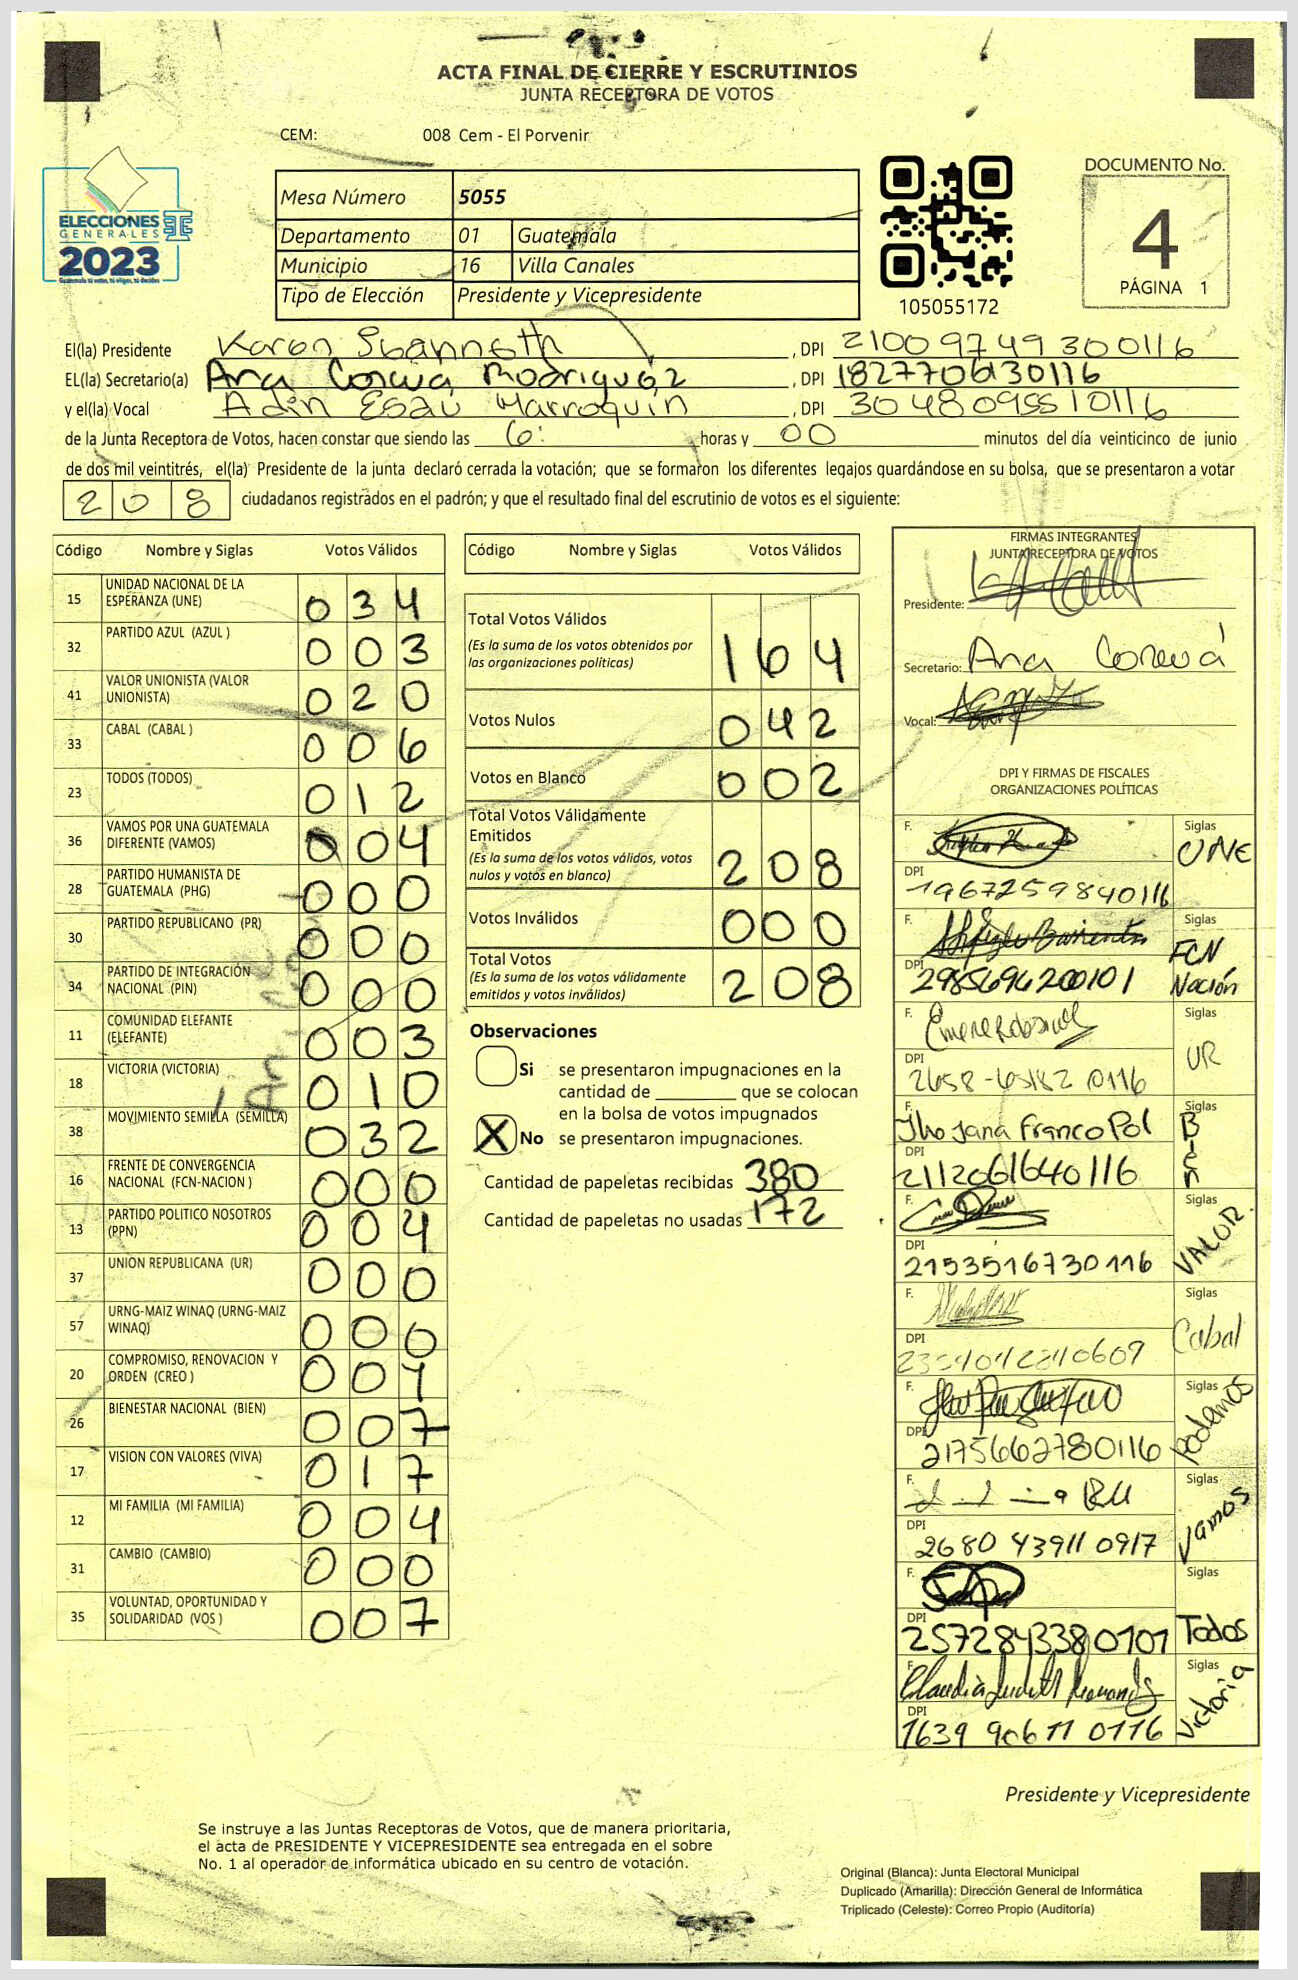 ACTA FINAL DE CIERRE Y ESCRUTINIOS
JUNTA RECEPTORA DE VOTOS
CEM: 008 Cem - El Porvenir
ELECCIONES
GENERALES
2023
Mesa Número 5055
Departamento 01 Guatemala
Municipio 16 Villa Canales
Tipo de Elección Presidente y Vicepresidente
105055172
DOCUMENTO No.
4
PÁGINA 1
El(la) Presidente Karen , DPI 2100974930116
EL(la) Secretario(a) Ana Rodriguez , DPI 1827706130116
y el(la) Vocal Adin Esaú Marroquín , DPI 3048095510116
de la Junta Receptora de Votos, hacen constar que siendo las 6: horas y 00 minutos del día veinticinco de junio
de dos mil veintitrés, el(la) Presidente de la junta declaró cerrada la votación; que se formaron los diferentes legajos guardándose en su bolsa, que se presentaron a votar
208 ciudadanos registrados en el padrón; y que el resultado final del escrutinio de votos es el siguiente:
Código Nombre y Siglas Votos Válidos
15 UNIDAD NACIONAL DE LA ESPERANZA (UNE) 034
32 PARTIDO AZUL (AZUL ) 003
41 VALOR UNIONISTA (VALOR UNIONISTA) 020
33 CABAL (CABAL ) 006
23 TODOS (TODOS) 012
36 VAMOS POR UNA GUATEMALA DIFERENTE (VAMOS) 004
28 PARTIDO HUMANISTA DE GUATEMALA (PHG) 000
30 PARTIDO REPUBLICANO (PR) 000
34 PARTIDO DE INTEGRACIÓN NACIONAL (PIN) 000
11 COMUNIDAD ELEFANTE (ELEFANTE) 003
18 VICTORIA (VICTORIA) 010
38 MOVIMIENTO SEMILLA (SEMILLA) 032
16 FRENTE DE CONVERGENCIA NACIONAL (FCN-NACION ) 000
13 PARTIDO POLITICO NOSOTROS (PPN) 004
37 UNION REPUBLICANA (UR) 000
57 URNG-MAIZ WINAQ (URNG-MAIZ WINAQ) 000
20 COMPROMISO, RENOVACION Y ORDEN (CREO )
26 BIENESTAR NACIONAL (BIEN) 007
17 VISION CON VALORES (VIVA) 017
12 MI FAMILIA (MI FAMILIA) 004
31 CAMBIO (CAMBIO) 000
35 VOLUNTAD, OPORTUNIDAD Y SOLIDARIDAD (VOS ) 007
Código Nombre y Siglas Votos Válidos
Total Votos Válidos 164
(Es la suma de los votos obtenidos por
las organizaciones políticas)
Votos Nulos 042
Votos en Blanco 002
Total Votos Válidamente
Emitidos 208
(Es la suma de los votos válidos, votos
nulos y votos en blanco)
Votos Inválidos 000
Total Votos 208
(Es la suma de los votos válidamente
emitidos y votos inválidos)
Observaciones
Si se presentaron impugnaciones en la
cantidad de ________ que se colocan
en la bolsa de votos impugnados
X No se presentaron impugnaciones.
Cantidad de papeletas recibidas 380
Cantidad de papeletas no usadas 172
FIRMAS INTEGRANTES
JUNTA RECEPTORA DE VOTOS
Presidente:
Secretario: Ana
Vocal:
DPI Y FIRMAS DE FISCALES
ORGANIZACIONES POLÍTICAS
F. Siglas UNE
DPI 1967259840116
F. Siglas FCN Nación
DPI 2985696200101
F. Siglas UR
DPI
F. Franco Pol Siglas Bien
DPI 2112061640116
F. Siglas VALOR
DPI 2153516730116
F. Siglas Cabal
DPI
F. Siglas Podemos
DPI 2175662780116
F. Siglas Vamos
DPI 2680 43911 0917
F. Siglas Todos
DPI 2572843380101
F. Claudia Judith Siglas Victoria
DPI 1639 90611 0116
Presidente y Vicepresidente
Se instruye a las Juntas Receptoras de Votos, que de manera prioritaria,
el acta de PRESIDENTE Y VICEPRESIDENTE sea entregada en el sobre
No. 1 al operador de informática ubicado en su centro de votación.
Original (Blanca): Junta Electoral Municipal
Duplicado (Amarilla): Dirección General de Informática
Triplicado (Celeste): Correo Propio (Auditoría)